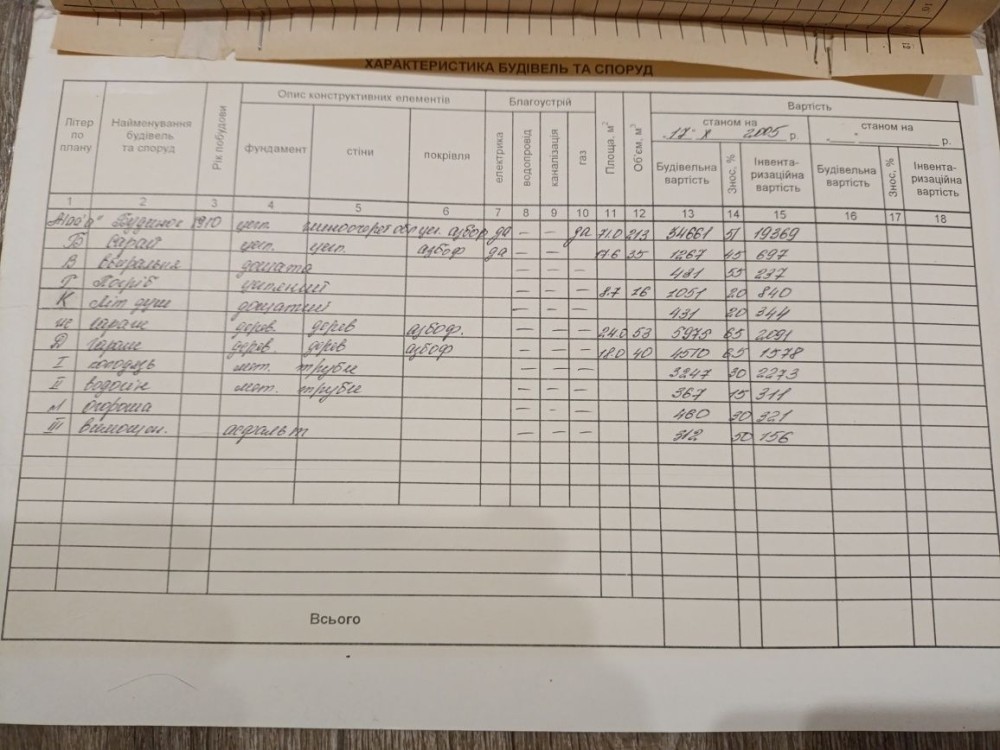 10
12
ХАРАКТЕРИСТИКА БУДІВЕЛЬ ТА СПОРУД
Літер по плану Найменування будівель та споруд Рік побудови Опис конструктивних елементів Благоустрій Площа, м² Об'єм, м³ Вартість
фундамент стіни покрівля електрика водопровід каналізація газ станом на 17 X 2005 р. станом на р.
Будівельна вартість Знос, % Інвента-ризаційна вартість Будівельна вартість Знос, % Інвента-ризаційна вартість
1 2 3 4 5 6 7 8 9 10 11 12 13 14 15 16 17 18
Будинок 1910 цегл. азбоф да — — да 71.0 213 54661 51 19369
Б Сарай цегл. цегл. азбоф да — — 17.6 35 1267 45 697
В Вбиральня дощата — — — 431 55 237
Г Погріб цегляний — — — 8.7 16 1051 20 840
К Літ душ дощатий — — — 431 20 344
гараж дерев дерев азбоф. — — — 24.0 53 5975 65 2091
Д Гараж дерев. дерев азбоф — — — 18.0 40 4510 65 1578
I колодязь мет. труби — — — 3247 30 2273
II водогін мет. труби — — — 367 15 311
огорожа — — — 460 30 321
III вимощен. асфальт — — — 312 50 156
Всього